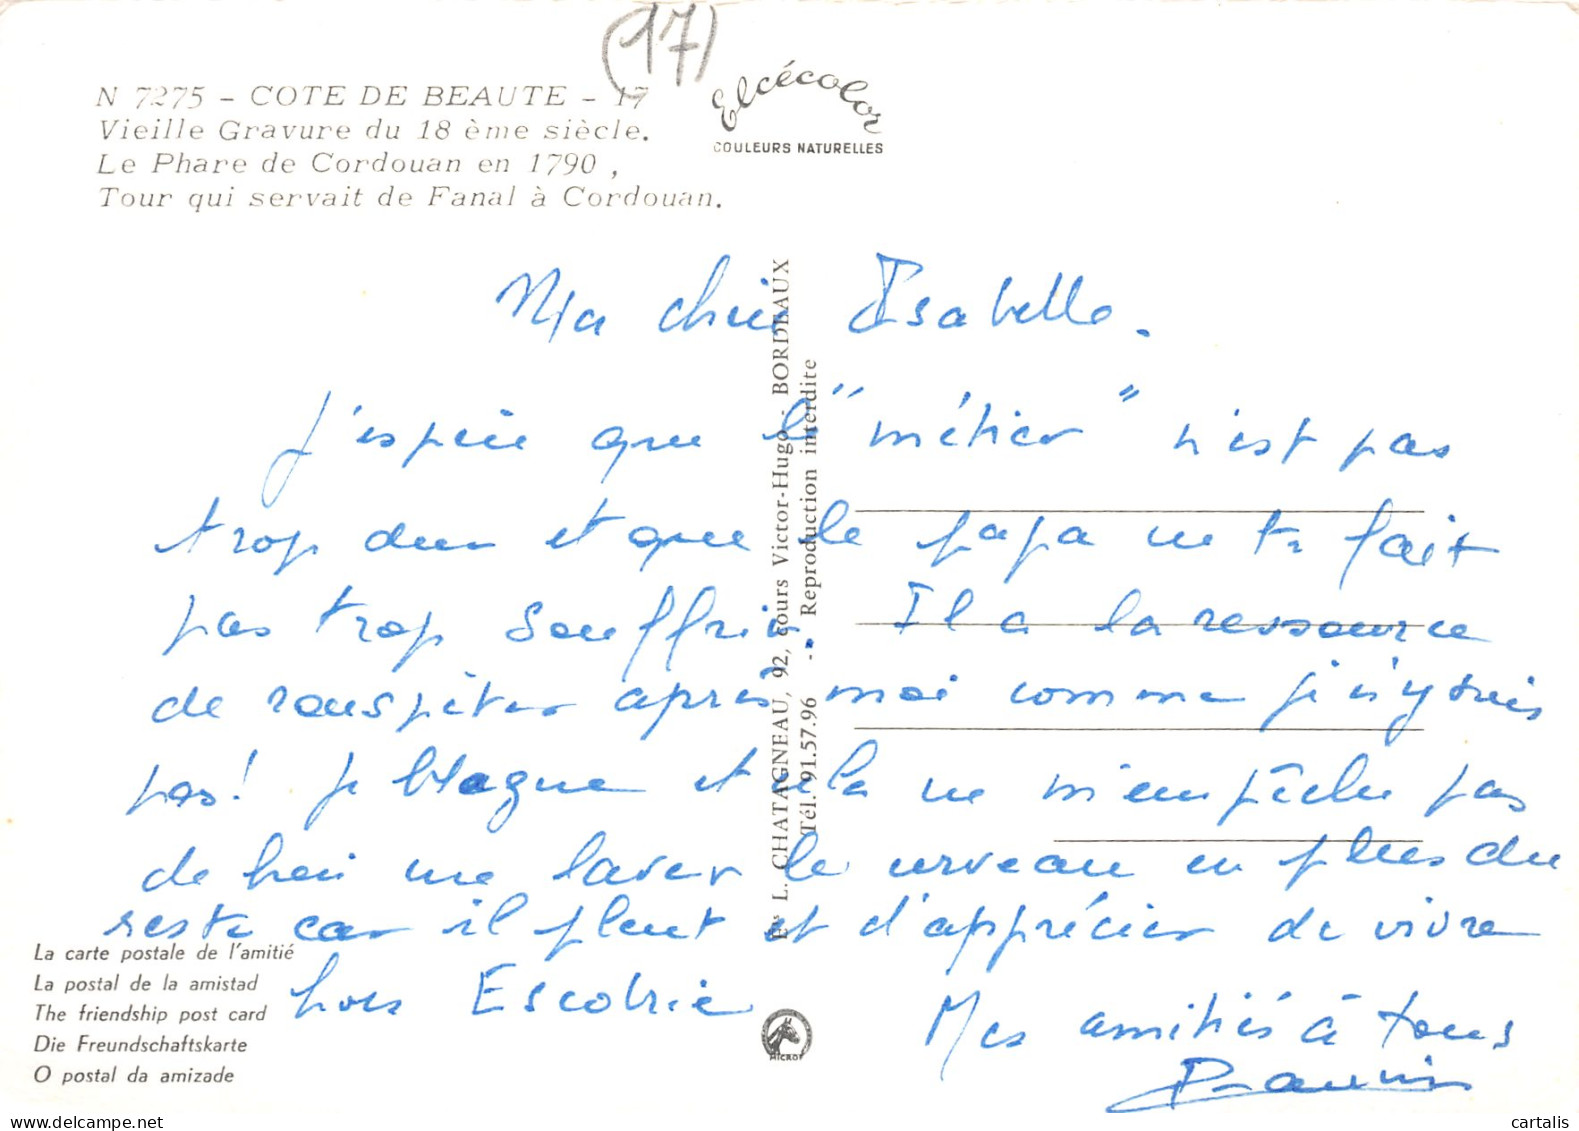 (17)
N 7275 - COTE DE BEAUTE - 17
Vieille Gravure du 18 ème siècle.
Le Phare de Cordouan en 1790 ,
Tour qui servait de Fanal à Cordouan.
Elcécolor
COULEURS NATURELLES
Ma chère Isabelle.
J'espère que le "métier" n'est pas
trop dur et que le papa ne te fait
pas trop souffrir. Il a la ressource
de rouspéter après moi comme je n'y suis
pas ! Je blague et cela ne m'empêche pas
de bien me laver le cerveau en plus du
reste car il pleut et d'apprécier de vivre
hors
Mes amitiés à tous
Ets L. CHATAGNEAU, 92, cours Victor-Hugo - BORDEAUX
Tél. 91.57.96 -- Reproduction interdite
La carte postale de l'amitié
La postal de la amistad
The friendship post card
Die Freundschaftskarte
O postal da amizade
MICRO
cartalis